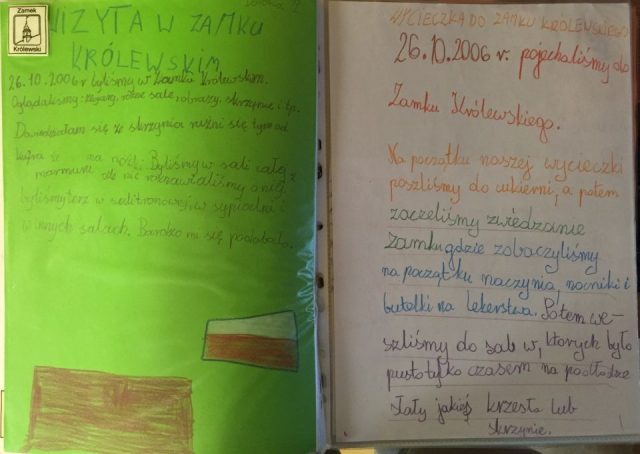 Zamek
Królewski
WIZYTA W ZAMKU
KRÓLEWSKIM
26.10.2006 r byliśmy w Zamku Królewskim.
Oglądaliśmy: różne sale, obrazy, skrzynie i tp.
Dowiedziałam się że skrzynia rużni się tym od
że ma nóżki. Byliśmy w sali całej z
marmuru ale nie rozmawialiśmy o niej
byliśmy też w sali tronowej, w sypialni i
w innych salach. Bardzo mi się podobało.
WYCIECZKA DO ZAMKU KRÓLEWSKIEGO
26.10.2006 r. pojechaliśmy do
Zamku Królewskiego.
Na początku naszej wycieczki
poszliśmy do cukierni, a potem
zaczeliśmy zwiedzanie
Zamku gdzie zobaczyliśmy
na początku naczynia, nocniki i
butelki na lekarstwa. Potem we-
szliśmy do sal w, ktorych było
pusto tylko czasem na podłodze
stały jakieś krzesła lub
skrzynie.